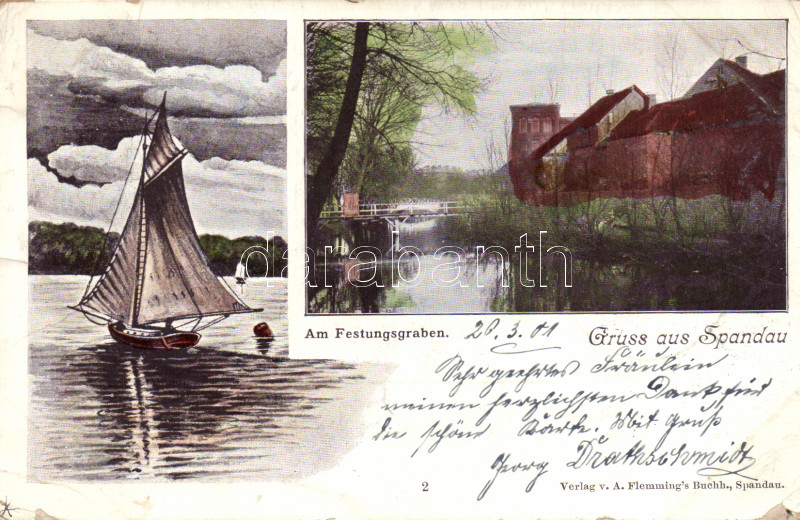 Am Festungsgraben.
20.3.01
Gruss aus Spandau
Sehr geehrtes Fräulein
meinen herzlichsten Dank für
die schöne Karte. Mit Gruß
Georg Drathschmidt
2
Verlag v. A. Flemming's Buchh., Spandau.
darabanth